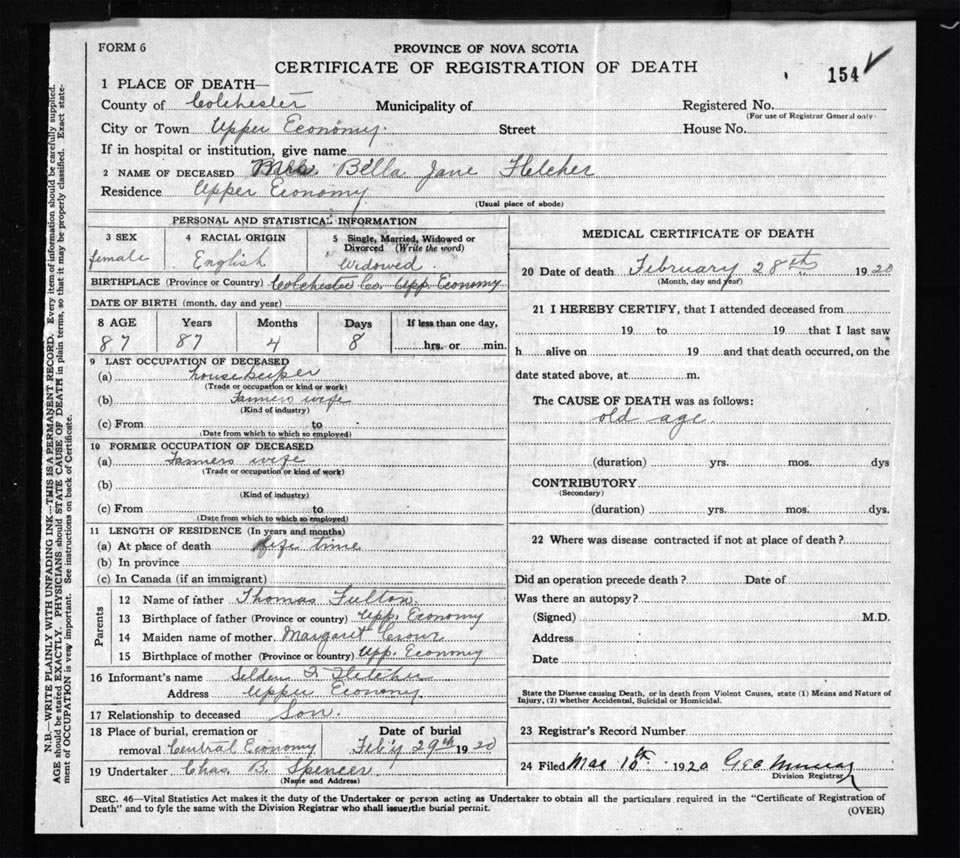 FORM 6
PROVINCE OF NOVA SCOTIA
CERTIFICATE OF REGISTRATION OF DEATH
154
1 PLACE OF DEATH—
County of Colchester Municipality of Registered No.
(For use of Registrar General only)
City or Town Upper Economy. Street House No.
If in hospital or institution, give name
2 NAME OF DECEASED Mrs. Bella Jane Fletcher
Residence Upper Economy
(Usual place of abode)
PERSONAL AND STATISTICAL INFORMATION
3 SEX 4 RACIAL ORIGIN 5 Single, Married, Widowed or Divorced (Write the word)
female English Widowed.
BIRTHPLACE (Province or Country) Colchester Co. Upp. Economy
DATE OF BIRTH (month, day and year)
8 AGE Years Months Days If less than one day,
87 87 4 8 hrs. or min.
9 LAST OCCUPATION OF DECEASED
(a) housekeeper
(Trade or occupation or kind or work)
(b) Farmers wife
(Kind of industry)
(c) From to
(Date from which to which so employed)
10 FORMER OCCUPATION OF DECEASED
(a) Farmers wife
(Trade or occupation or kind of work)
(b)
(Kind of industry)
(c) From to
(Date from which to which so employed)
11 LENGTH OF RESIDENCE (In years and months)
(a) At place of death life time
(b) In province
(c) In Canada (if an immigrant)
Parents
12 Name of father Thomas Fulton
13 Birthplace of father (Province or country) Upp. Economy
14 Maiden name of mother Margaret
15 Birthplace of mother (Province or country) Upp. Economy
16 Informant's name Selden F. Fletcher
Address Upper Economy
17 Relationship to deceased Son.
18 Place of burial, cremation or removal Central Economy Date of burial Feb'y 29th 1920
19 Undertaker Chas. B. Spencer.
(Name and Address)
MEDICAL CERTIFICATE OF DEATH
20 Date of death February 28th 1920
(Month, day and year)
21 I HEREBY CERTIFY, that I attended deceased from
19 to 19 that I last saw
h alive on 19 and that death occurred, on the
date stated above, at m.
The CAUSE OF DEATH was as follows:
old age.
(duration) yrs. mos. dys
CONTRIBUTORY
(Secondary)
(duration) yrs. mos. dys.
22 Where was disease contracted if not at place of death?
Did an operation precede death? Date of
Was there an autopsy?
(Signed) M.D.
Address
Date
State the Disease causing Death, or in death from Violent Causes, state (1) Means and Nature of
Injury, (2) whether Accidental, Suicidal or Homicidal.
23 Registrar's Record Number
24 Filed Mar 10th 1920 Geo Murray
Division Registrar
SEC. 46—Vital Statistics Act makes it the duty of the Undertaker or person acting as Undertaker to obtain all the particulars required in the "Certificate of Registration of
Death" and to fyle the same with the Division Registrar who shall issue the burial permit.
(OVER)
N.B.—WRITE PLAINLY WITH UNFADING INK—THIS IS A PERMANENT RECORD. Every item of information should be carefully supplied.
AGE should be stated EXACTLY. PHYSICIANS should STATE CAUSE OF DEATH in plain terms, so that it may be properly classified. Exact state-
ment of OCCUPATION is very important. See instructions on back of Certificate.